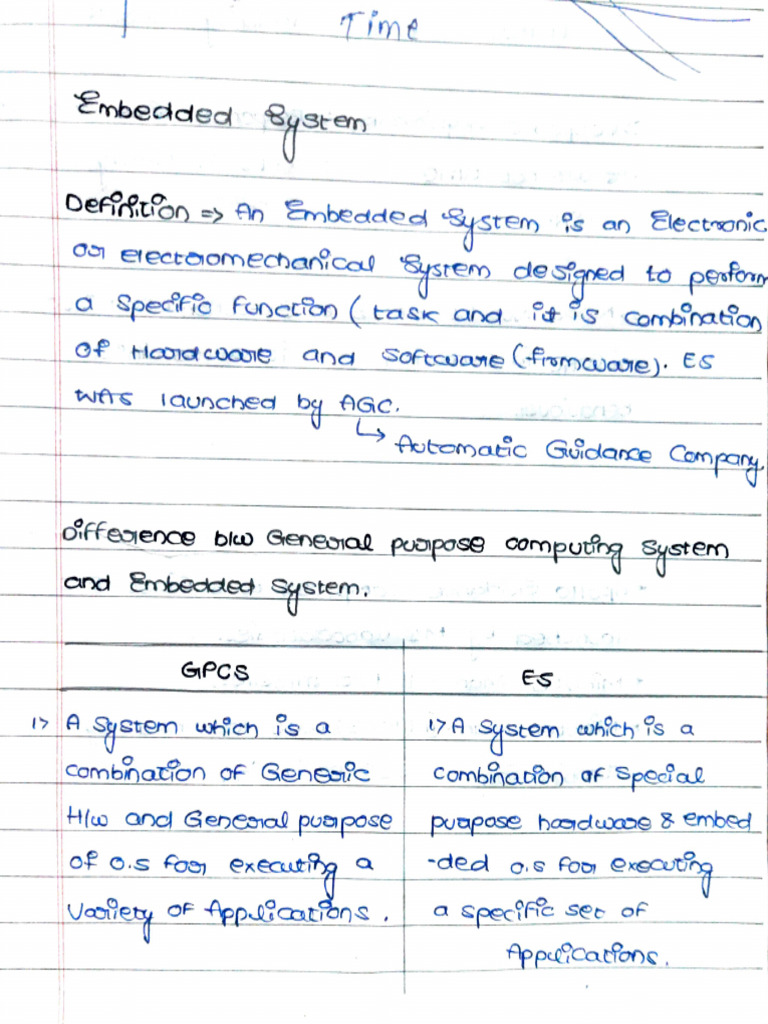 Time
Embedded System
Definition => An Embedded System is an Electronic
or electromechanical System designed to perform
a specific function (task and it is combination
of Hardware and software (firmware). ES
was launched by AGC.
↳ Automatic Guidance Company.
Difference b/w General purpose computing system
and Embedded system.
GPCS ES
1> A system which is a 1> A system which is a
combination of Generic combination of special
H/w and General purpose purpose hardware & embed
of o.s for executing a -ded o.s for executing
variety of Applications. a specific set of
Applications.